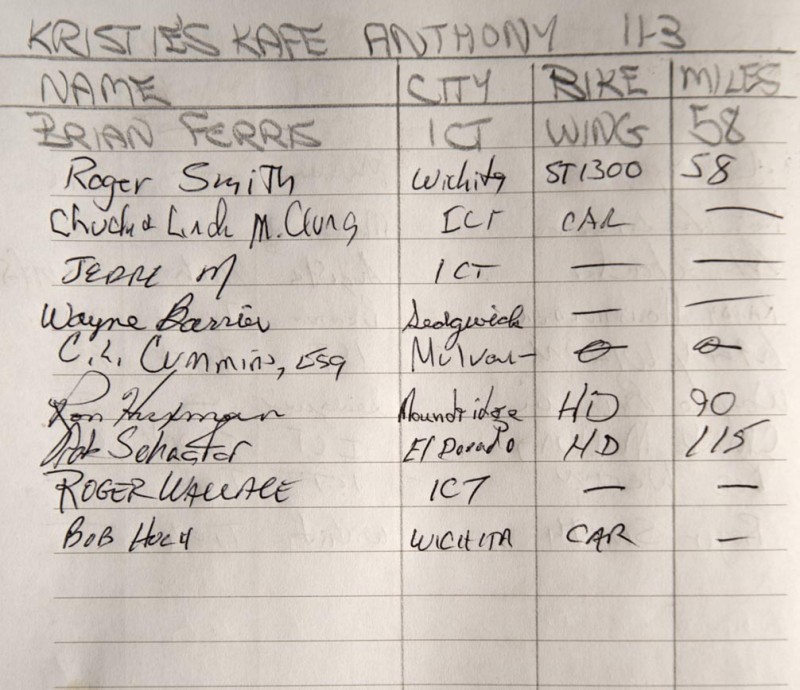 KRISTIE'S KAFE ANTHONY 11-3
NAME CITY BIKE MILES
BRIAN FERRIS ICT WING 58
Roger Smith Wichita ST1300 58
Chuck & Linda McClung ICT CAR —
JERRE M ICT — —
Wayne Barrier Sedgwick — —
C.L. Cummins, ESQ Mulvane
Ron Moundridge HD 90
Schaefer El Dorado HD 115
ROGER WALLACE ICT — —
BOB HOCH WICHITA CAR —